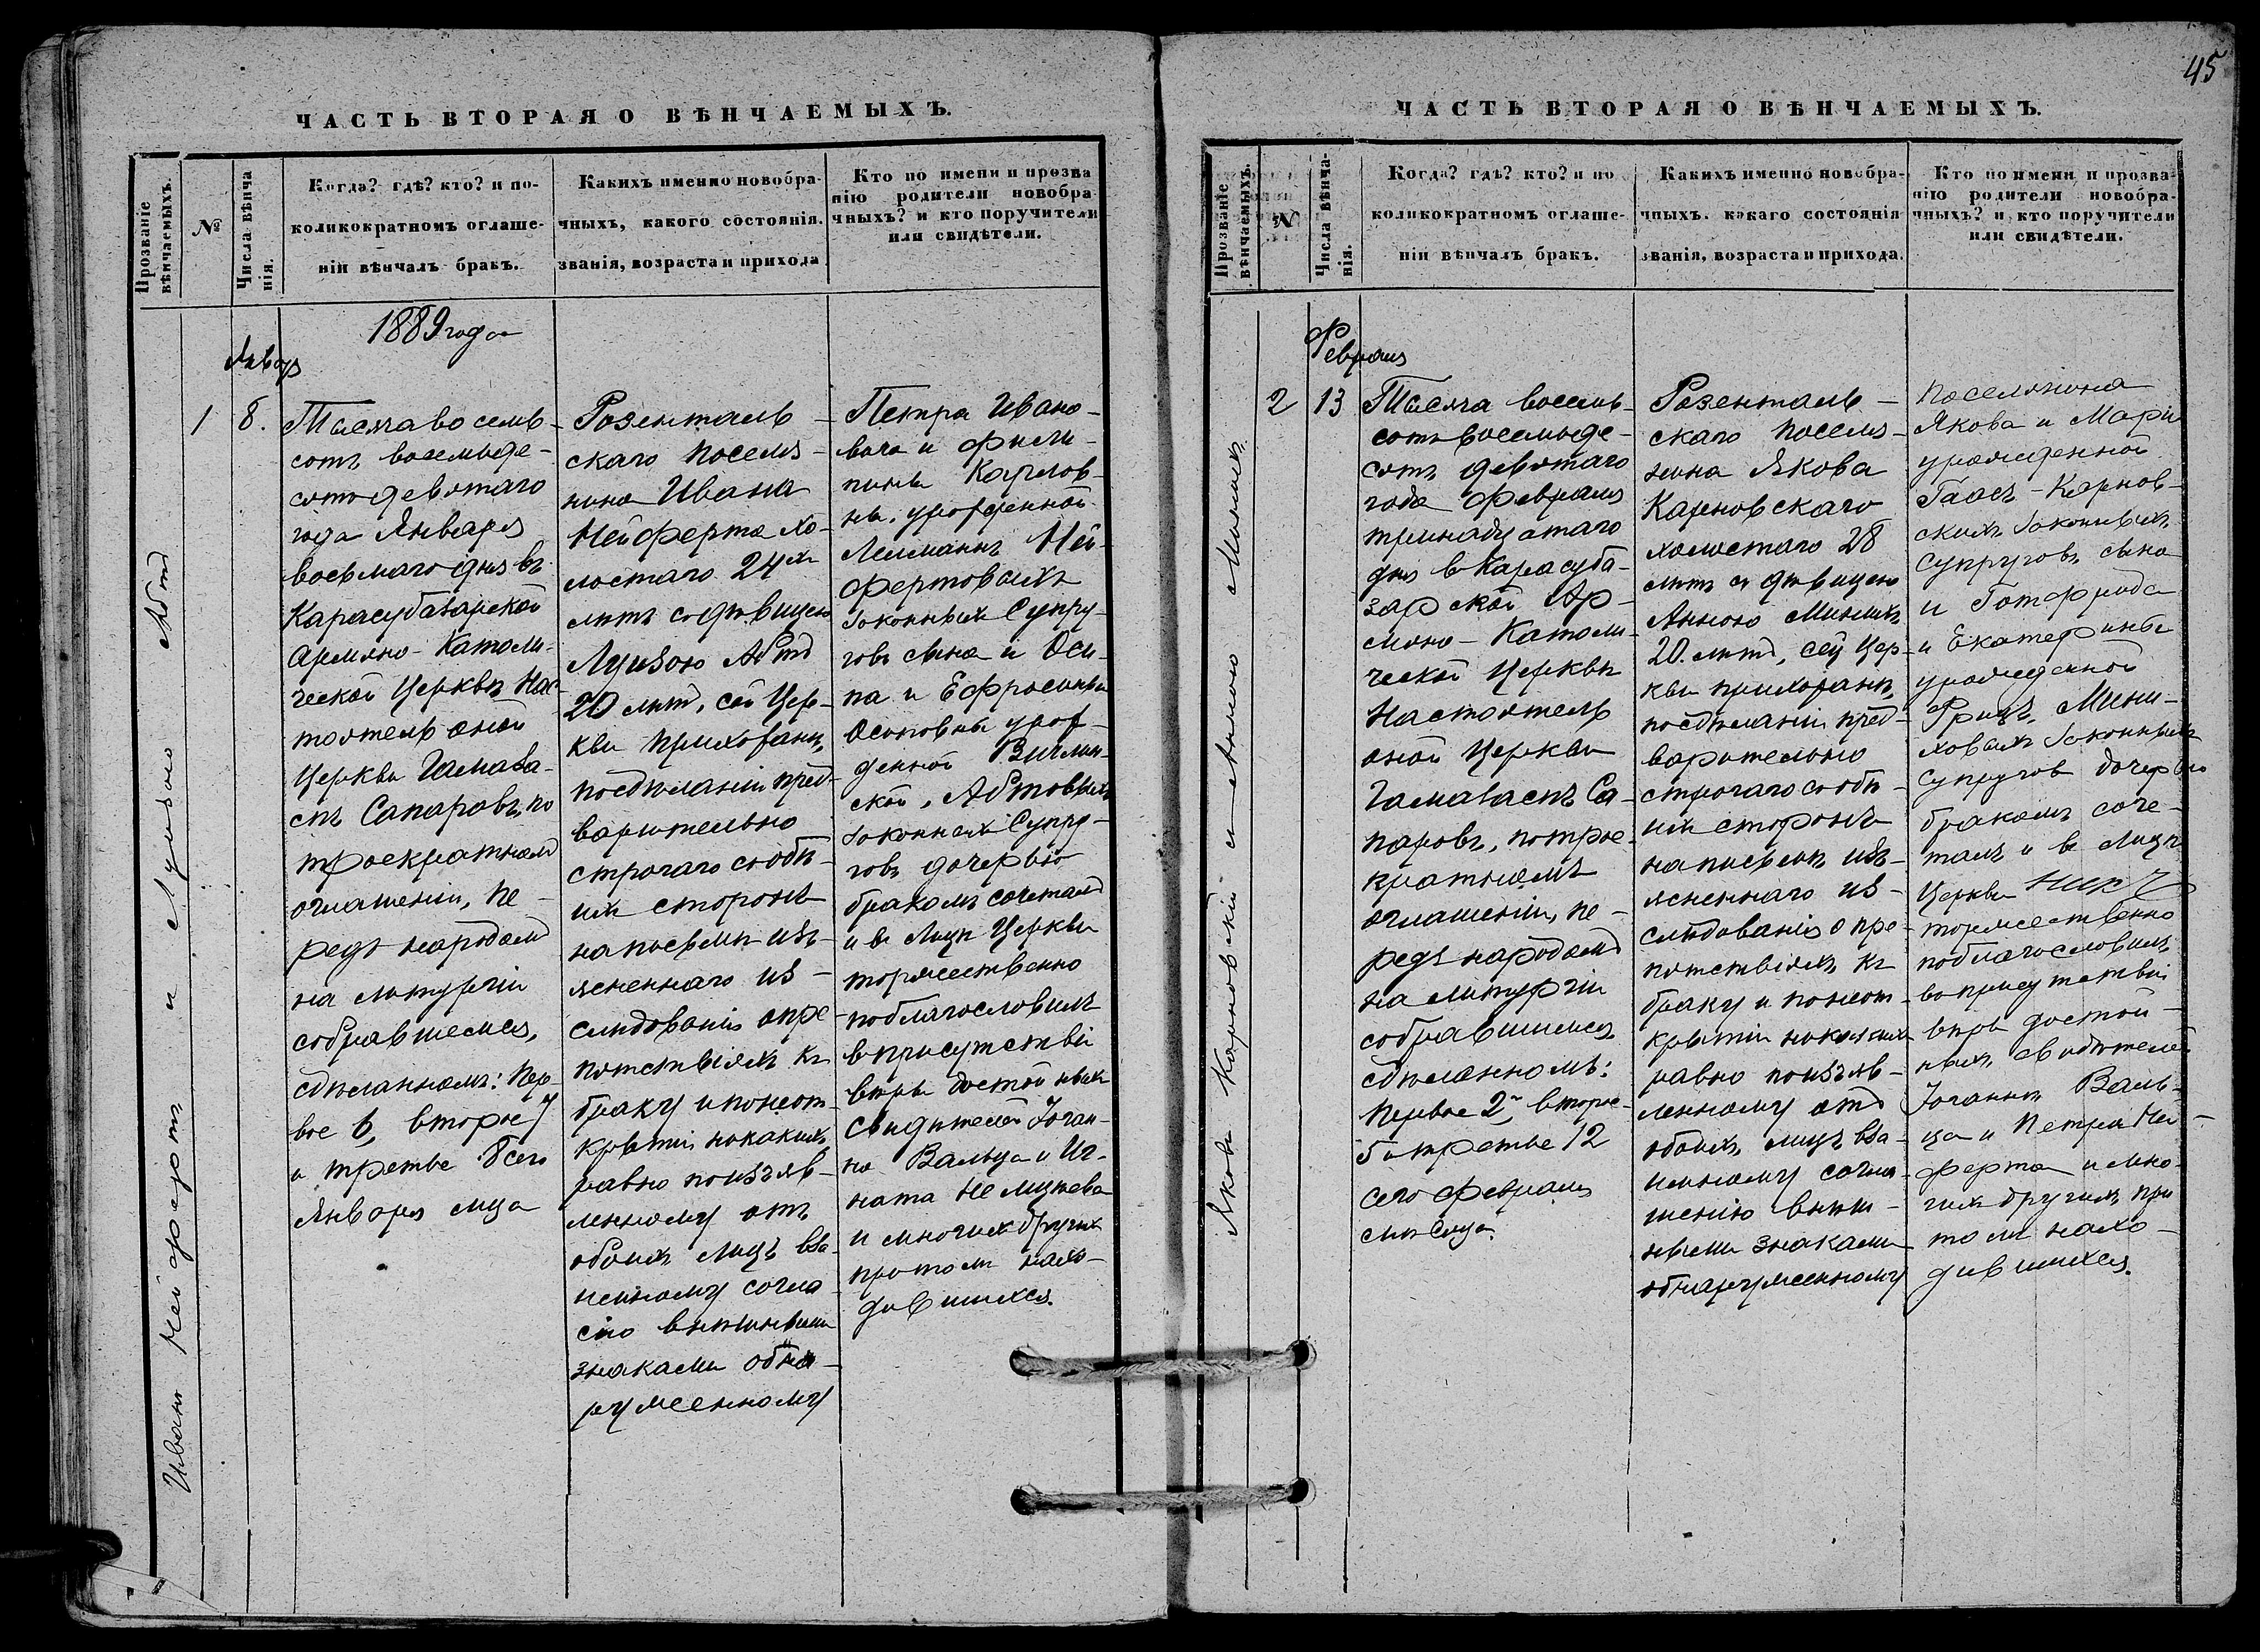 ЧАСТЬ ВТОРАЯ О ВѢНЧАЕМЫХЪ.
Прозваніе
вѣнчаемыхъ.
№
Числа вѣнча
нія.
Когда? гдѣ? кто? и по-
коликократномъ оглаше-
ніи вѣнчалъ бракъ.
Какихъ именно новобра-
чныхъ, какого состоянія.
званія, возраста и прихода
Кто по имени и прозва
нію родители новобра-
чныхъ? и кто поручители
или свидѣтели.
Иванъ Нейфертъ и Луизою Абтъ
1889 года
Январ
1
8.
Тысяча восемь-
сотъ восемьде-
сятъ девятаго
года Января
восьмаго дня въ
Карасубазарской
Армяно-Католи-
ческой Церквѣ Нас-
тоятель оной
Церкви Гамаза-
спъ Сапаровъ, по
троекратномъ
оглашеніи, пе-
редъ народомъ
на литургіи
собравшемся,
сдѣланномъ: пер-
вое 6, второе 7
и третье 8 сего
Января м-ца
Розенталь-
скаго поселя-
нина Ивана
Нейферта хо-
лостаго 24хъ
лѣтъ съ дѣвицею
Луизою Абтъ
20 лѣтъ, сей Цер-
кви прихожанъ,
посдѣланіи пред-
варительно
строгаго сообѣ-
ихъ сторонъ
на письмѣ изъ-
ясненнаго из-
слѣдованія о пре-
пятствіяхъ къ
браку и понеот-
крытіи никакихъ
равно поизъяв-
ленному отъ
обоихъ лицъ вза-
имному согла
сію внѣшними
знаками обна-
руженному
Петра Ивано-
вича и Фили-
пины Карлов-
ны, урожденной
Леиманъ Ней-
фертовыхъ
Законныхъ Супру-
говъ сына и Оси-
па и Ефросиніи
Осиповны урож-
денной
ской, Абтовыхъ
законныхъ Супру-
говъ дочерью
бракомъ сочеталъ
и въ лицѣ Церкви
торжественно
поблагословилъ
въ присутствіи
вѣры достойныхъ
Свидѣтелей Іоган-
на Вальца и Иг-
ната
и многихъ другихъ
притомъ нахо-
дившихся.
45
ЧАСТЬ ВТОРАЯ О ВѢНЧАЕМЫХЪ.
Прозваніе
вѣнчаемыхъ.
№
Числа вѣнча-
нія.
Когда? гдѣ? кто? и по
коликократномъ оглаше-
ніи вѣнчалъ бракъ.
Какихъ именно новобра-
чныхъ. какаго состоянія
званія, возраста и прихода.
Кто по имени и прозва-
нію родители новобра-
чныхъ? и кто поручители
или свидѣтели.
Яковъ Карновскій и Анною Минихъ
Февраля
2
13
Тысяча восемь-
сотъ восемьде-
сятъ девятаго
года Февраля
тринадцатаго
дня въ Карасуба-
зарской Ар-
мяно-Католи-
ческой Церкви
Настоятель
оной Церкви
Гамазаспъ Са-
паровъ, потрое-
кратномъ
оглашеніи, пе-
редъ народомъ
на литургіи
собравшимся
сдѣланномъ:
первое 2, второе-
5 и третье 12
сего Февраля
мѣсяца.
Розенталь-
скаго поселя-
нина Якова
Карновскаго
холостаго 28
лѣтъ съ дѣвицею
Анною Минихъ
20. лѣтъ, сей Цер-
кви прихожанъ,
посдѣланіи пред-
варительно
строгаго сообѣ-
ихъ сторонъ
на письмѣ изъ-
ясненнаго из-
слѣдованія о пре-
пятствіяхъ къ
браку и понеот-
крытіи никакихъ
равно поизъяв-
ленному отъ
обоихъ лицъ вза-
имному согла-
шенію внѣш-
ными знаками
обнаруженному
поселянина
Якова и Маріи
урожденной
Гаасъ-Карнов-
скихъ Законныхъ
Супруговъ сына
и Готфрида
и Екатерины
урожденной
Фрицъ, Мини-
ховыхъ Законныхъ
супруговъ дочерью
бракомъ соче-
талъ и въ лицѣ
Церкви
торжественно
поблагословилъ
въ присутствіи
вѣры достой-
ныхъ свидѣтелей
Іоганна Валь-
ца и Петра Ней-
ферта и мно-
гихъ другихъ при
томъ нахо-
дившихся.